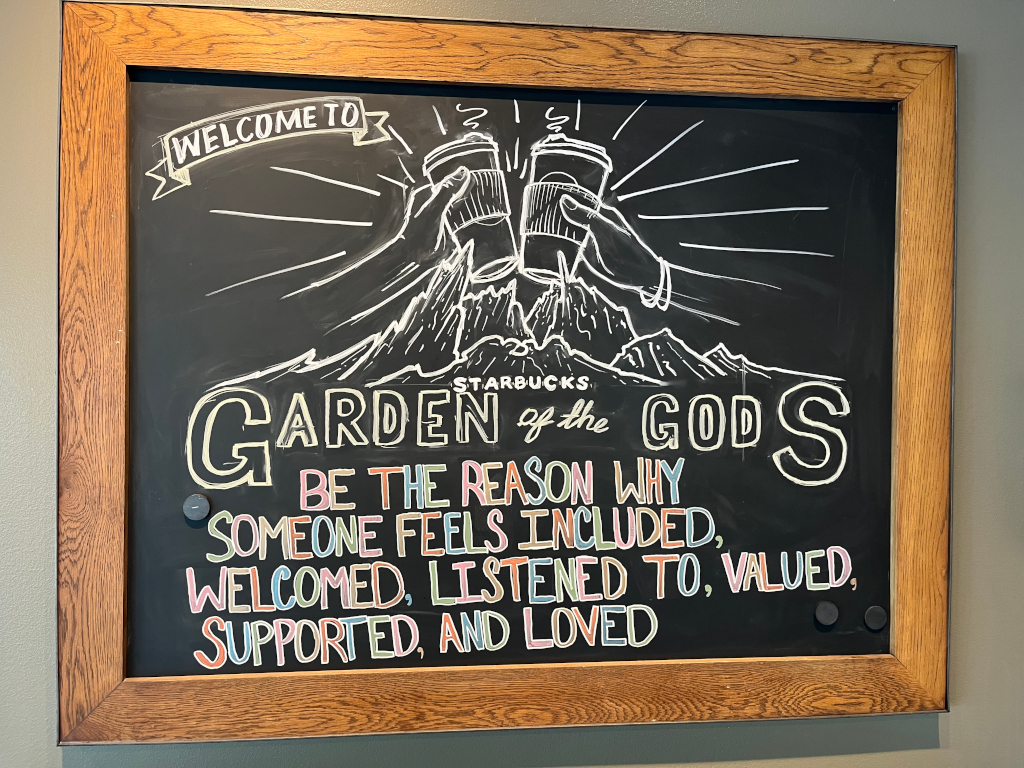 WELCOME TO
STARBUCKS
GARDEN of the GODS
BE THE REASON WHY
SOMEONE FEELS INCLUDED,
WELCOMED, LISTENED TO, VALUED,
SUPPORTED, AND LOVED